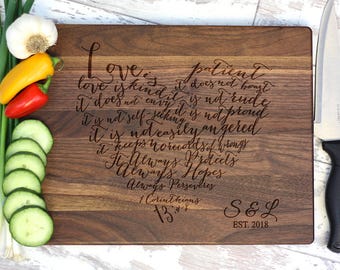 Love is patient
love is kind it does not boast
it does not envy it is not rude
it is not self-seeking it is not proud
it is not easily angered
it keeps no records of wrongs
It Always Protects
Always Hopes
Always Perseveres
1 Corinthians
13
S & L
EST. 2018